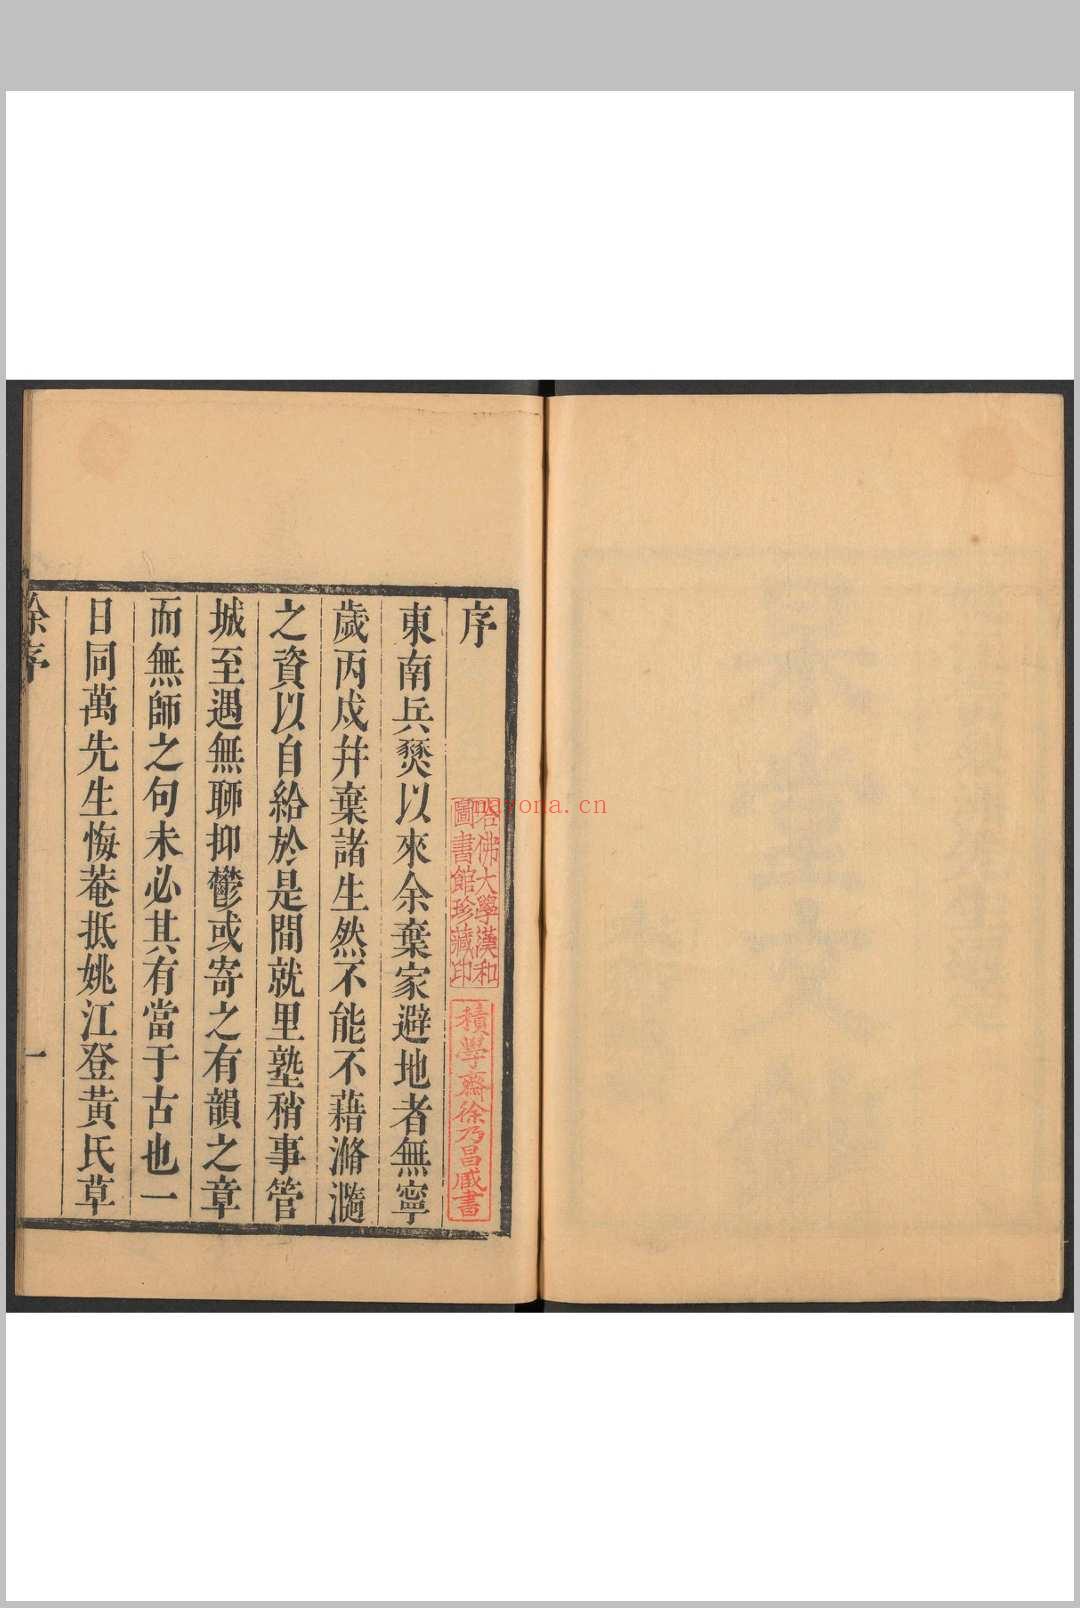 序
東南兵燹以來余棄家避地者無寧
歲丙戍幷棄諸生然不能不藉滫瀡
之資以自給於是間就里塾稍事管
城至遇無聊抑鬱或寄之有韻之章
而無師之句未必其有當于古也一
日同萬先生悔菴抵姚江登黃氏草
徐序
一
哈佛大學漢和
圖書館珍藏印
積學齋徐乃昌臧書
nayona.cn